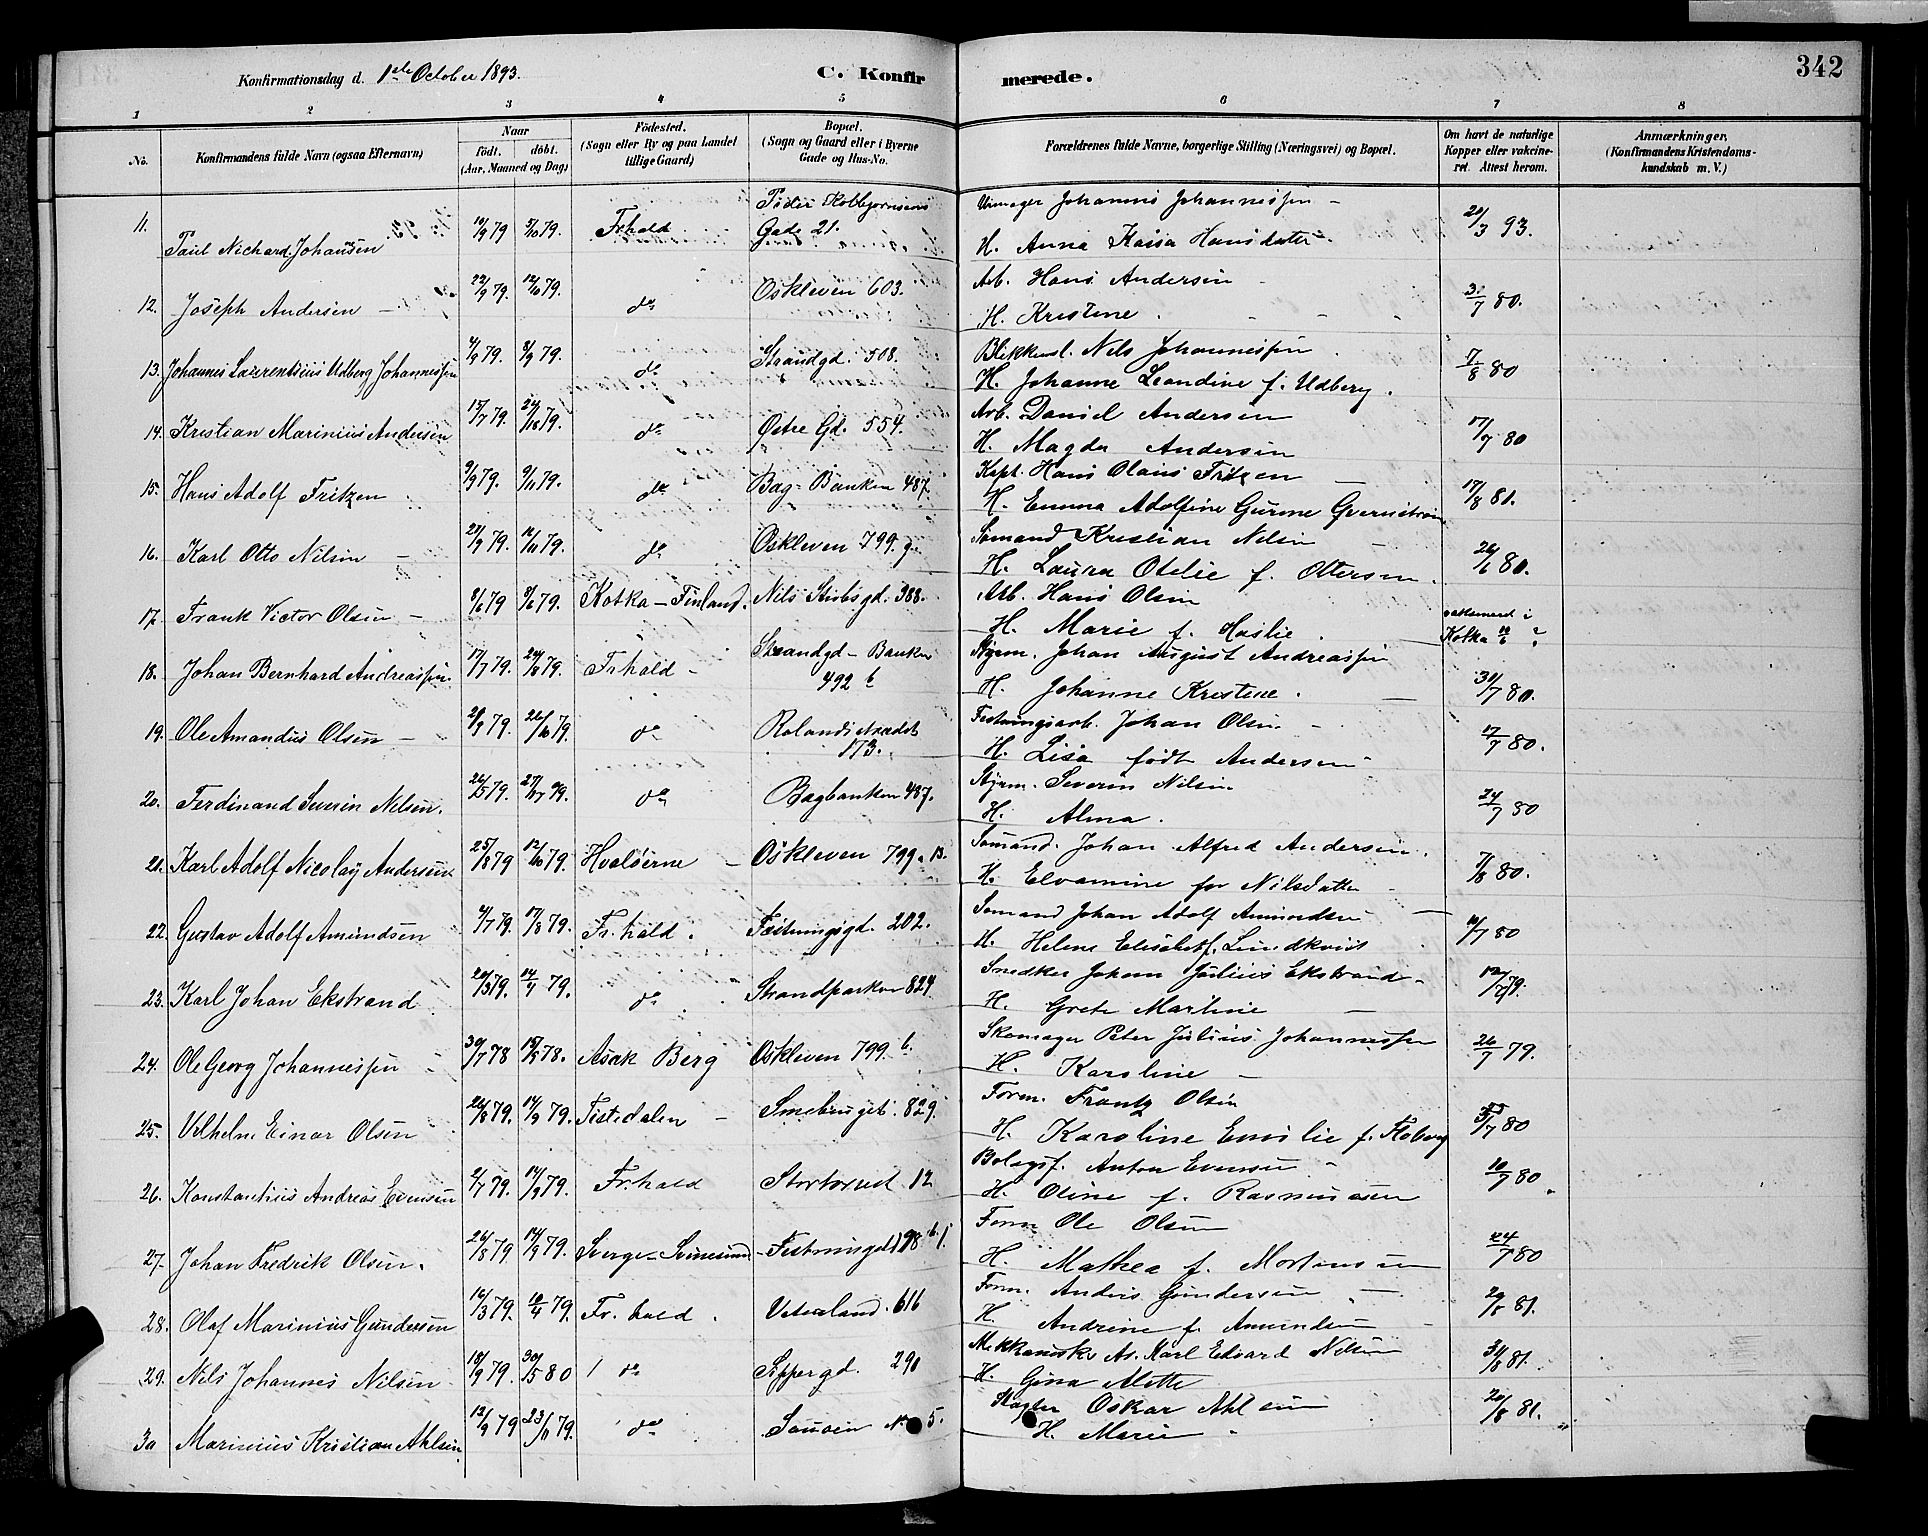 342
Konfirmationsdag d. 1ste October 1893. C. Konfirmerede.
1 2 3 4 5 6 7 8
No. Konfirmandens fulde Navn (ogsaa Efternavn) Naar født. døbt. (Aar, Maaned og Dag) Fødested. (Sogn eller By og paa Landet tillige Gaard) Bopæl. (Sogn og Gaard eller i Byerne Gade og Hus-No. Forældrenes fulde Navne, borgerlige Stilling (Næringsvei) og Bopæl. Om havt de naturlige Kopper eller vakcineret. Attest herom. Anmærkninger. (Konfirmandens Kristendomskundskab m. V.)
11. Paul Richard Johansen 10/9 79 5/10 79. Frhald Peder Kolbjørnsens Gade 21. Urmager Johannes Johannessen
H. Anna Kaisa Hansdatter 20/3 93.
12. Joseph Andersen 22/9 79. 12/10 79. do Oskleven 603. Arb. Hans Andersen
H. Kristine 3/7 80.
13. Johannes Laurentsius Udberg Johannessen 4/9 79. 8/9 79. do Strandgd. 508. Blikkensl. Nils Johannessen
H. Johanne Leandine f. Udberg. 7/8 80
14. Kristian Marinius Andersen 15/7 79. 24/8 79. do Østre Gd. 554. Arb. Daniel Andersen
H. Magda Andersen 17/7 80
15. Hans Adolf Fritzen 9/9 79. 9/11 79. do Bag-Banken 487 Kapt. Hans Olaus Fritzen
H. Emma Adolfine Gurine Qvernstrøm 17/8 81.
16. Karl Otto Nilsen 21/9 79. 16/11 79. do Oskleven 799. g. Sømand Kristian Nilsen
H. Laura Otelie f. Ottersen. 26/6 80.
17. Frank Victor Olsen 8/6 79 9/6 79. Kotka - Finland. Nils Stubsgd. 388. Arb. Hans Olsen
H. Marie f. Haslie. vaksineret i Kotka
18. Johan Bernhard Andreassen. 17/7 79. 24/8 79. Frhald Strandgd - Banken 492 b Styrm. Johan August Andreassen
H. Johanne Kristine. 31/7 80.
19. Ole Amandus Olsen 21/9 79. 26/10 79. do Rolandsstrædet 173. Festningsarb. Johan Olsen
H. Lisa født Andersen 17/7 80.
20. Ferdinand Severin Nilsen. 26/5 79. 27/7 79. do Bagbanken 487. Styrm. Severin Nilsen
H. Alma. 24/7 80
21. Karl Adolf Nicolay Andersen 25/8 79 12/10 79. Hvaløerne Oskleven 799. B. Sømand. Johan Alfred Andersen.
H. Elvamine for Nilsdatter 7/8 80.
22. Gustav Adolf Amundsen 4/7 79. 17/8 79. Fr.hald. Festningsgd. 202. Sømand Johan Adolf Amundsen
H. Helene Elisabeth f. Lundkvist 10/7 80
23. Karl Johan Ekstrand 20/3 79. 14/4 79. do Strandparken 824 Snedker Johan Julius Ekstrand
H. Grete Martine 12/7 79.
24. Ole Georg Johannessen 30/7 78 15/9 78. Asak Berg Oskleven 799. b. Skomager Peter Julius Johannessen
H. Karoline 26/7 79.
25. Vilhelm Einar Olsen 26/8 79. 14/9 79. Tistedalen Smebruget. 829. Form. Frantz Olsen
H. Karoline Emilie f. Floberg 31/7 80
26. Konstantius Andreas Evensen 2/7 79. 14/9 79. Fr.hald Stortorvet 12 Bolagsf. Anton Evensen
H. Oline f. Rasmussen 10/7 80.
27. Johan Fredrik Olsen. 26/8 79. 14/9 79. Sverge - Svinesund Festningsgd 198 b. Form Ole Olsen
H. Mathea f. Mortensen 24/7 80
28. Olaf Marinius Gundersen 16/3 79. 10/4 79. Fr.hald. Vaterland. 616 Form. Anders Gundersen
H. Andrine f. Amundsen 29/8 81.
29. Nils Johannes Nilsen 18/9 79. 30/5 80 do Seppergd. 290 Mekkaniske Ar. Karl Edvard Nilsen
H. Gina Mette 31/8 81.
30 Marinius Kristian Ahlsen. 12/9 79 23/11 79. do Sausen No 5. Slagter Oskar Ahlsen
H. Marie 20/8 81.